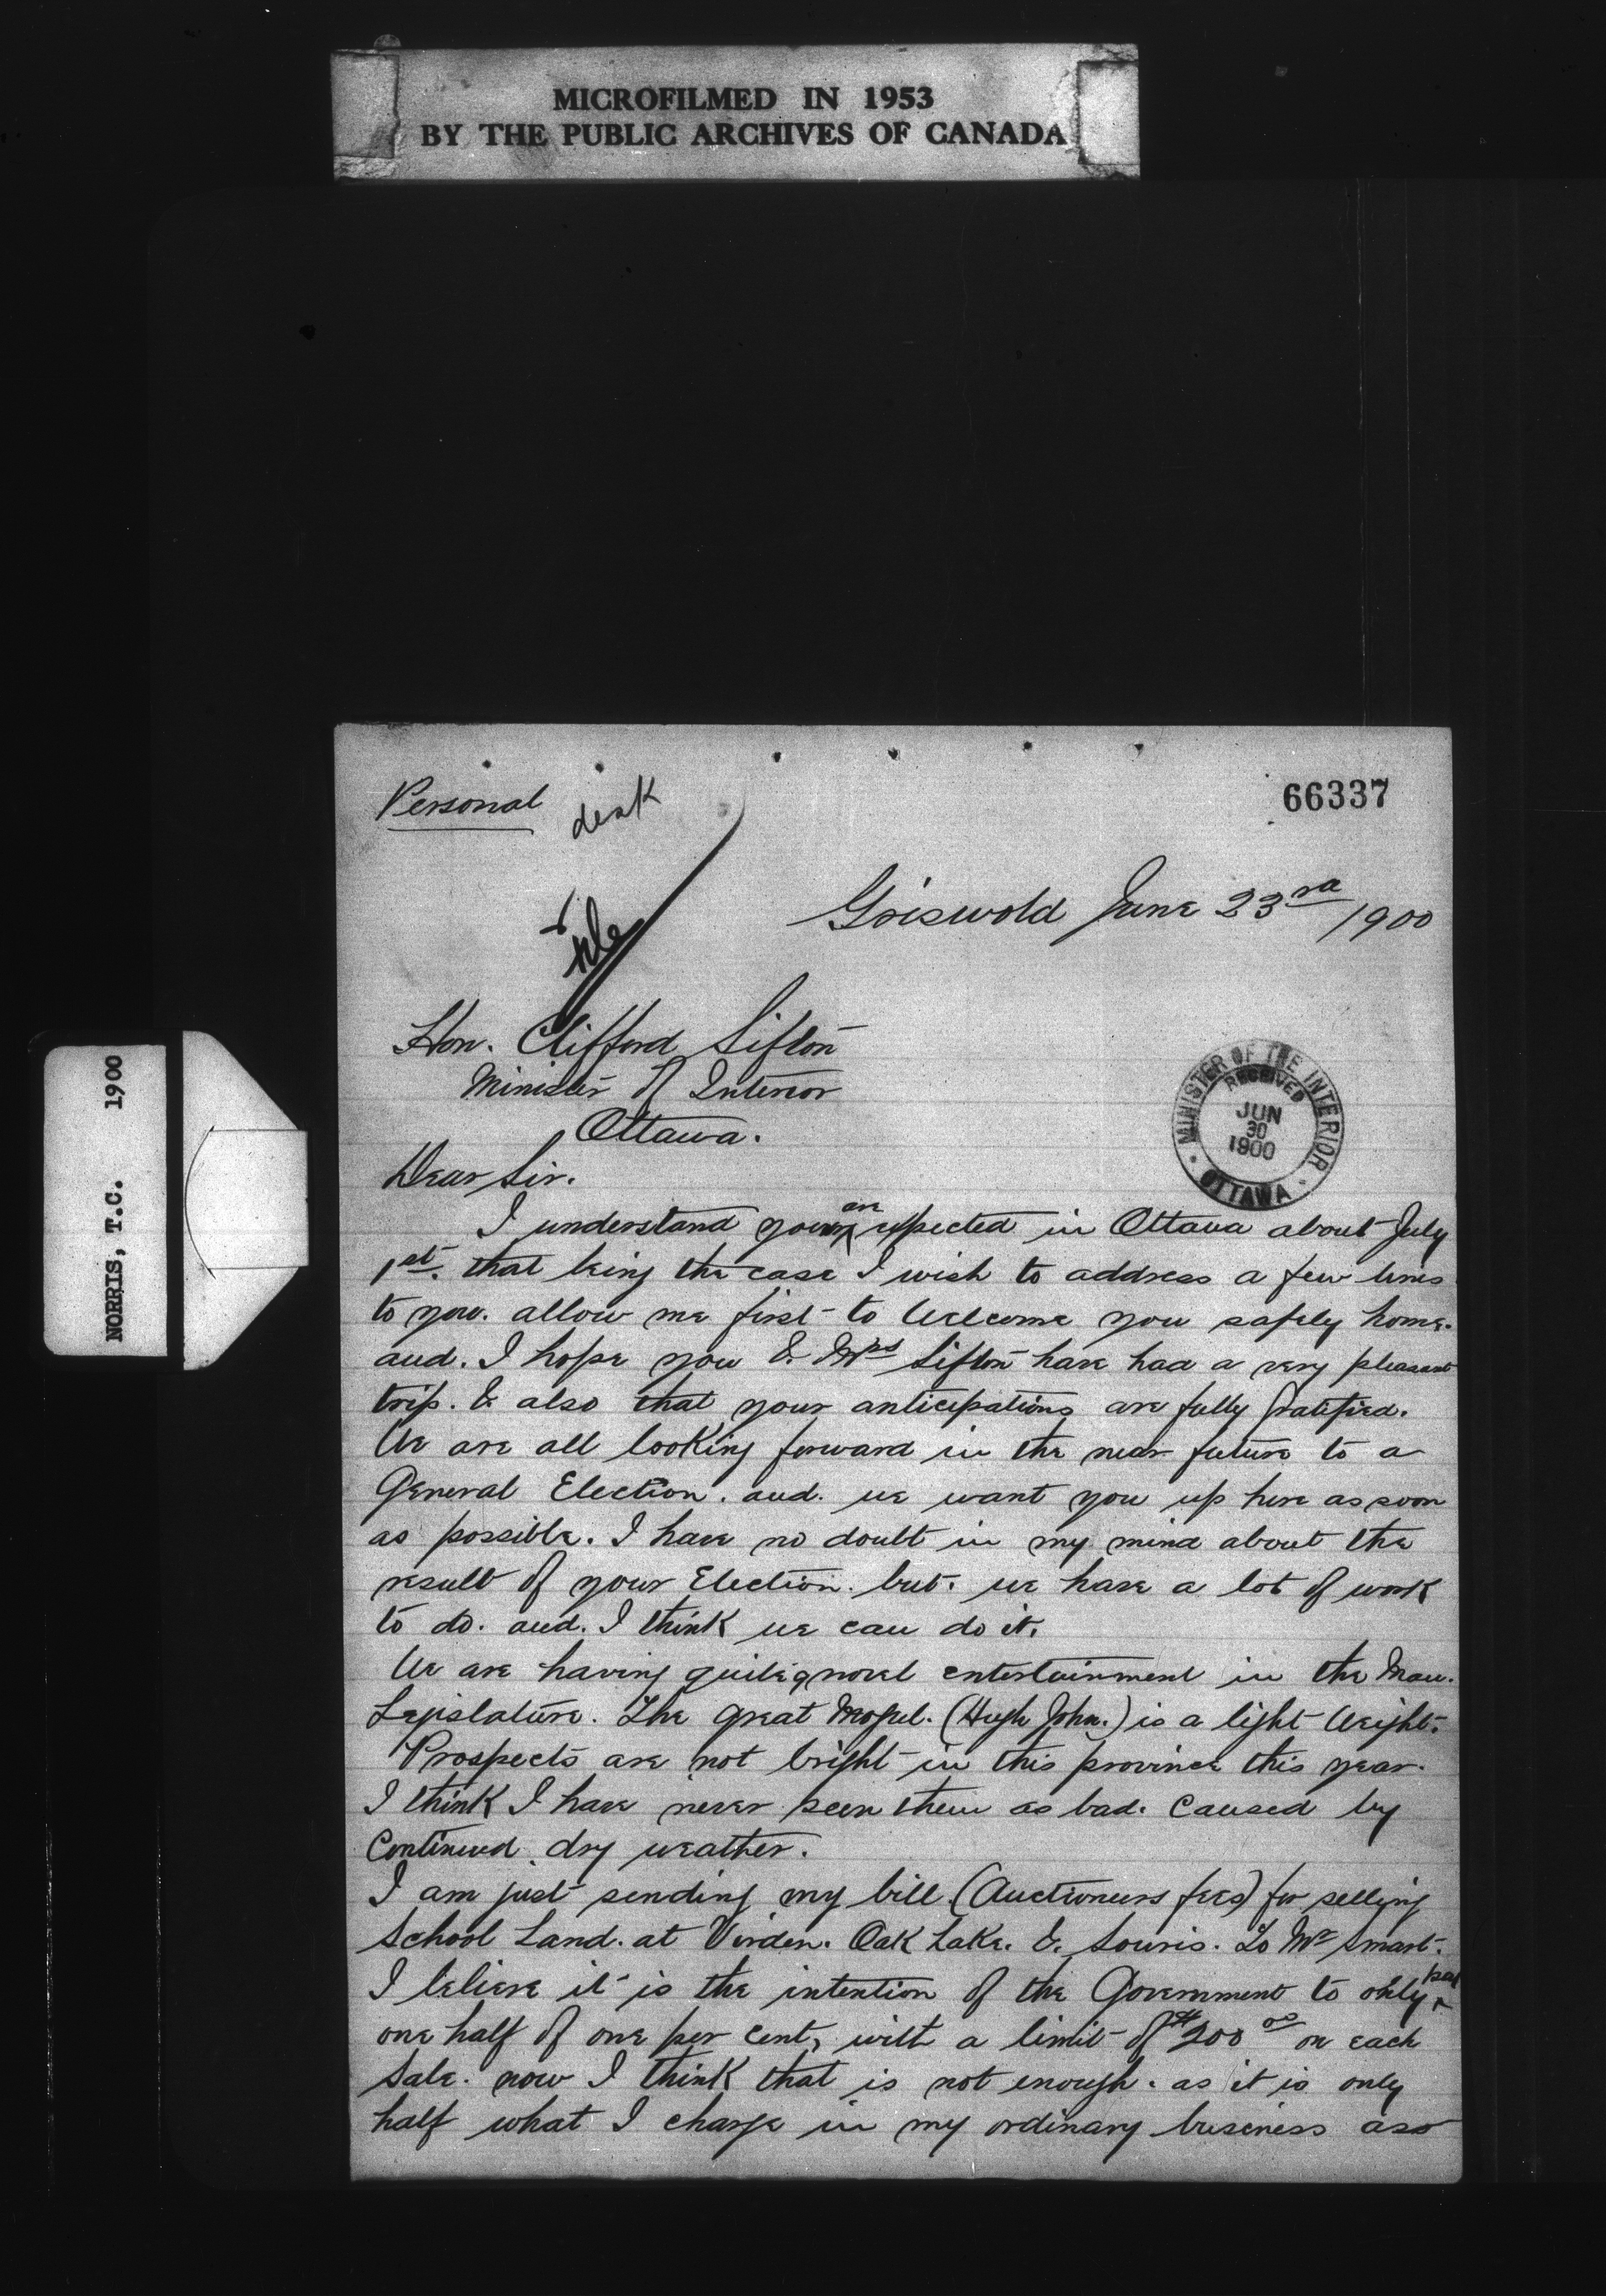 MICROFILMED IN 1953
BY THE PUBLIC ARCHIVES OF CANADA
NORRIS, T.C. 1900
Personal
desk
66337
file
Griswold June 23rd 1900
Hon. Clifford Sifton
Minister of Interior
Ottawa.
MINISTER OF THE INTERIOR
RECEIVED
JUN
30
1900
OTTAWA
Dear Sir.
I understand you are expected in Ottawa about July
1st. that being the case I wish to address a few lines
to you. allow me first to Welcome you safely home.
and. I hope you & Mrs Sifton have had a very pleasant
trip. & also that your anticipations are fully Gratified.
We are all looking forward in the near future to a
General Election. and. we want you up here as soon
as possible. I have no doubt in my mind about the
result of your Election. but. we have a lot of work
to do. and. I think we can do it.
We are having quite a novel entertainment in the Man.
Legislature. The great Mogul. (Hugh John.) is a light Weight.
Prospects are not bright in this province this year.
I think I have never seen them as bad. Caused by
Continued dry weather.
I am just sending my bill (Auctioneers fees) for selling
School Land. at Virden. Oak Lake. & Souris. To Mr Smart.
I believe it is the intention of the Government to only pay
one half of one per cent, with a limit of $200 00 on each
Sale. now I think that is not enough. as it is only
half what I charge in my ordinary business as